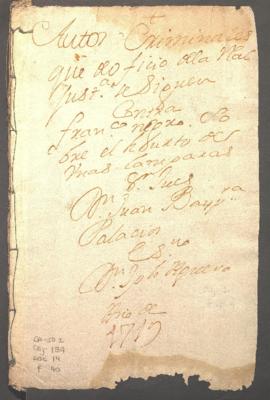 Autos Criminales
que de oficio de la Real
Just.ª se Siguen
Contra
fran.co negro, so
bre el hurto de
unas lamparas
S.r Juez
D.n Juan Bap.ta
Palacios
Es.no
D.n Jph de
Año de
CA-JO 1
Leg 184
Doc 14
f 40